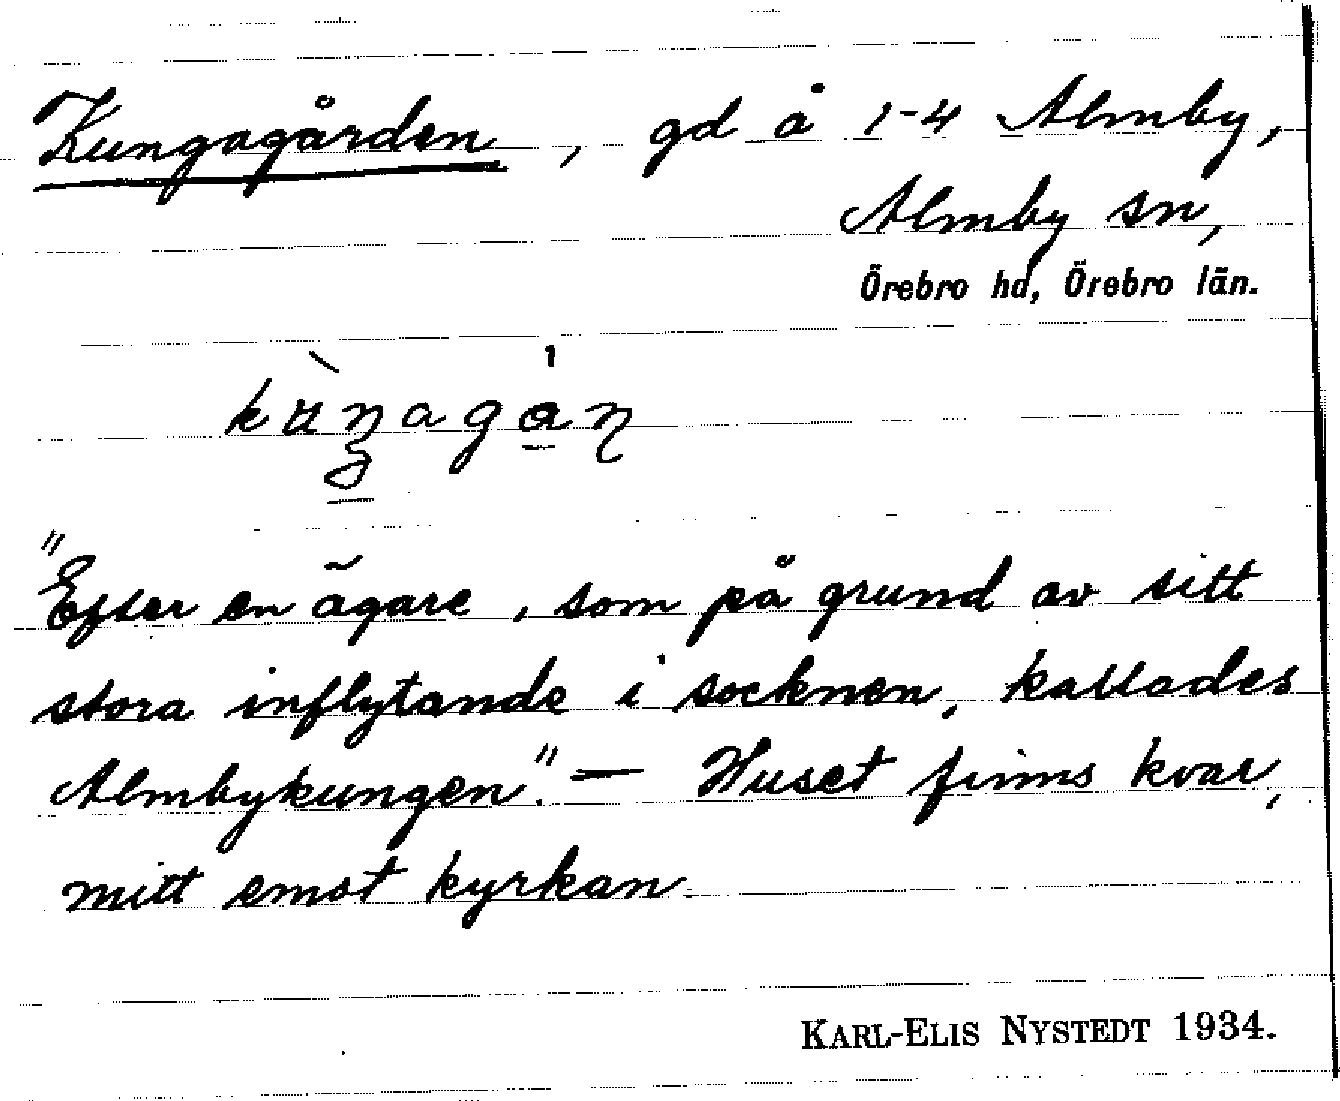 Kungagården, gd å 1-4 Almby,
Almby sn,
Örebro hd, Örebro län.
"Efter en ägare, som på grund av sitt
stora inflytande i socknen, kallades
Almbykungen". — Huset finns kvar,
mitt emot kyrkan
KARL-ELIS NYSTEDT 1934.